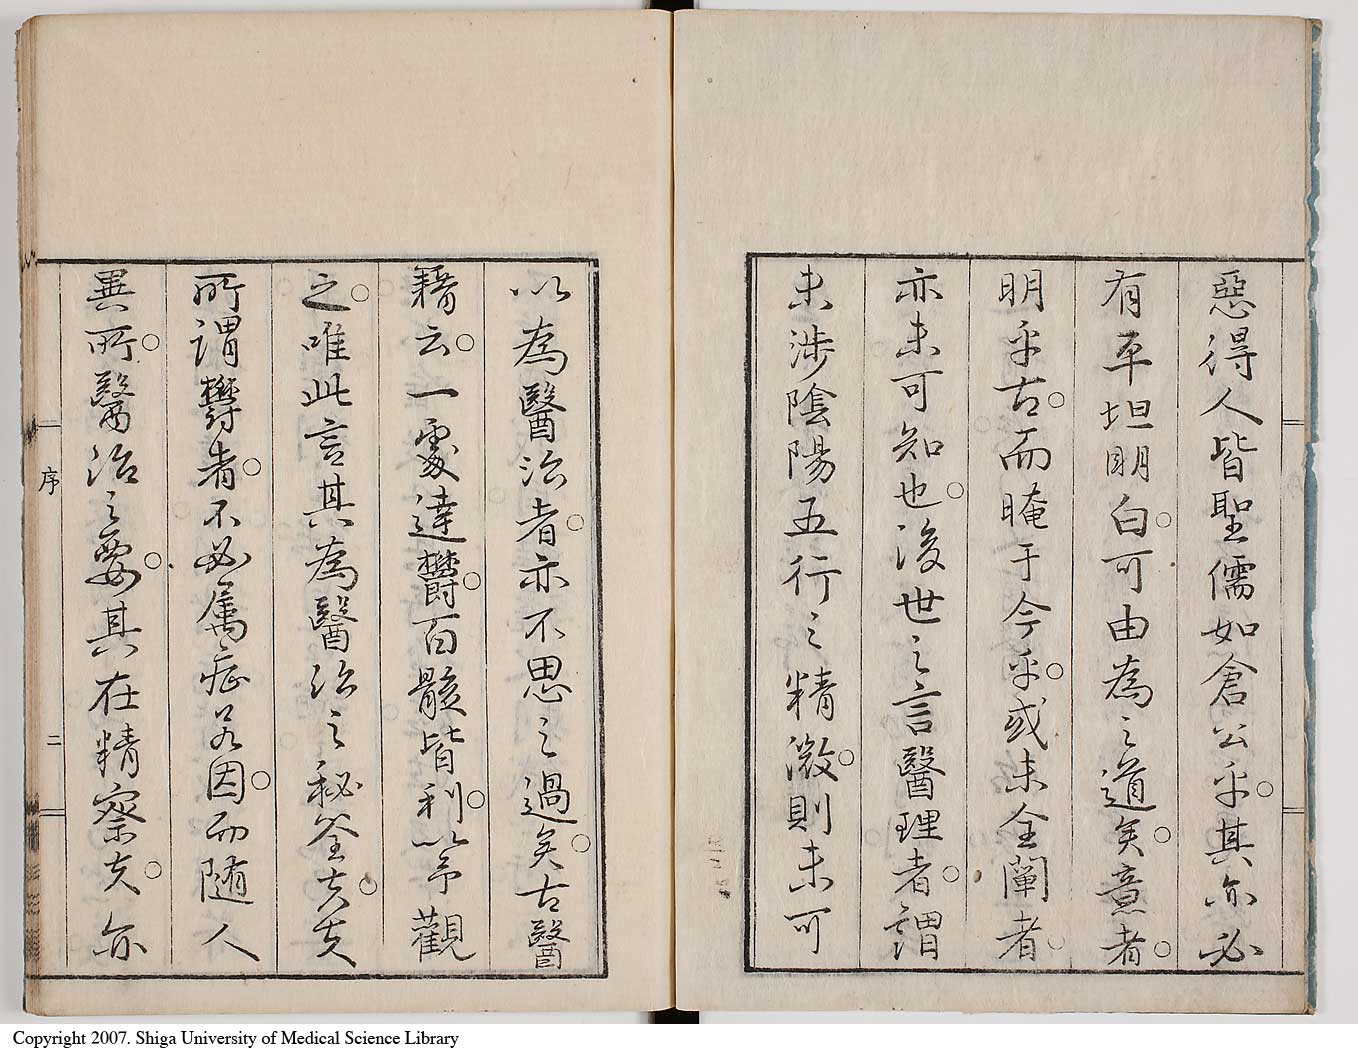 惡得人皆聖儒如倉公乎其亦必
有平坦明白可由為之道矣意者
明乎古而晻于今乎或未全闡者
亦未可知也後世之言醫理者謂
未涉陰陽五行之精微則未可
以為醫治者亦不思之過矣古醫
籍云一處達欝百骸皆利以予觀
之唯此言其為醫治之秘筌夫夫
所謂欝者不必属症必因而随人
異所醫治之要其在精察夫亦
序
二
Copyright 2007. Shiga University of Medical Science Library